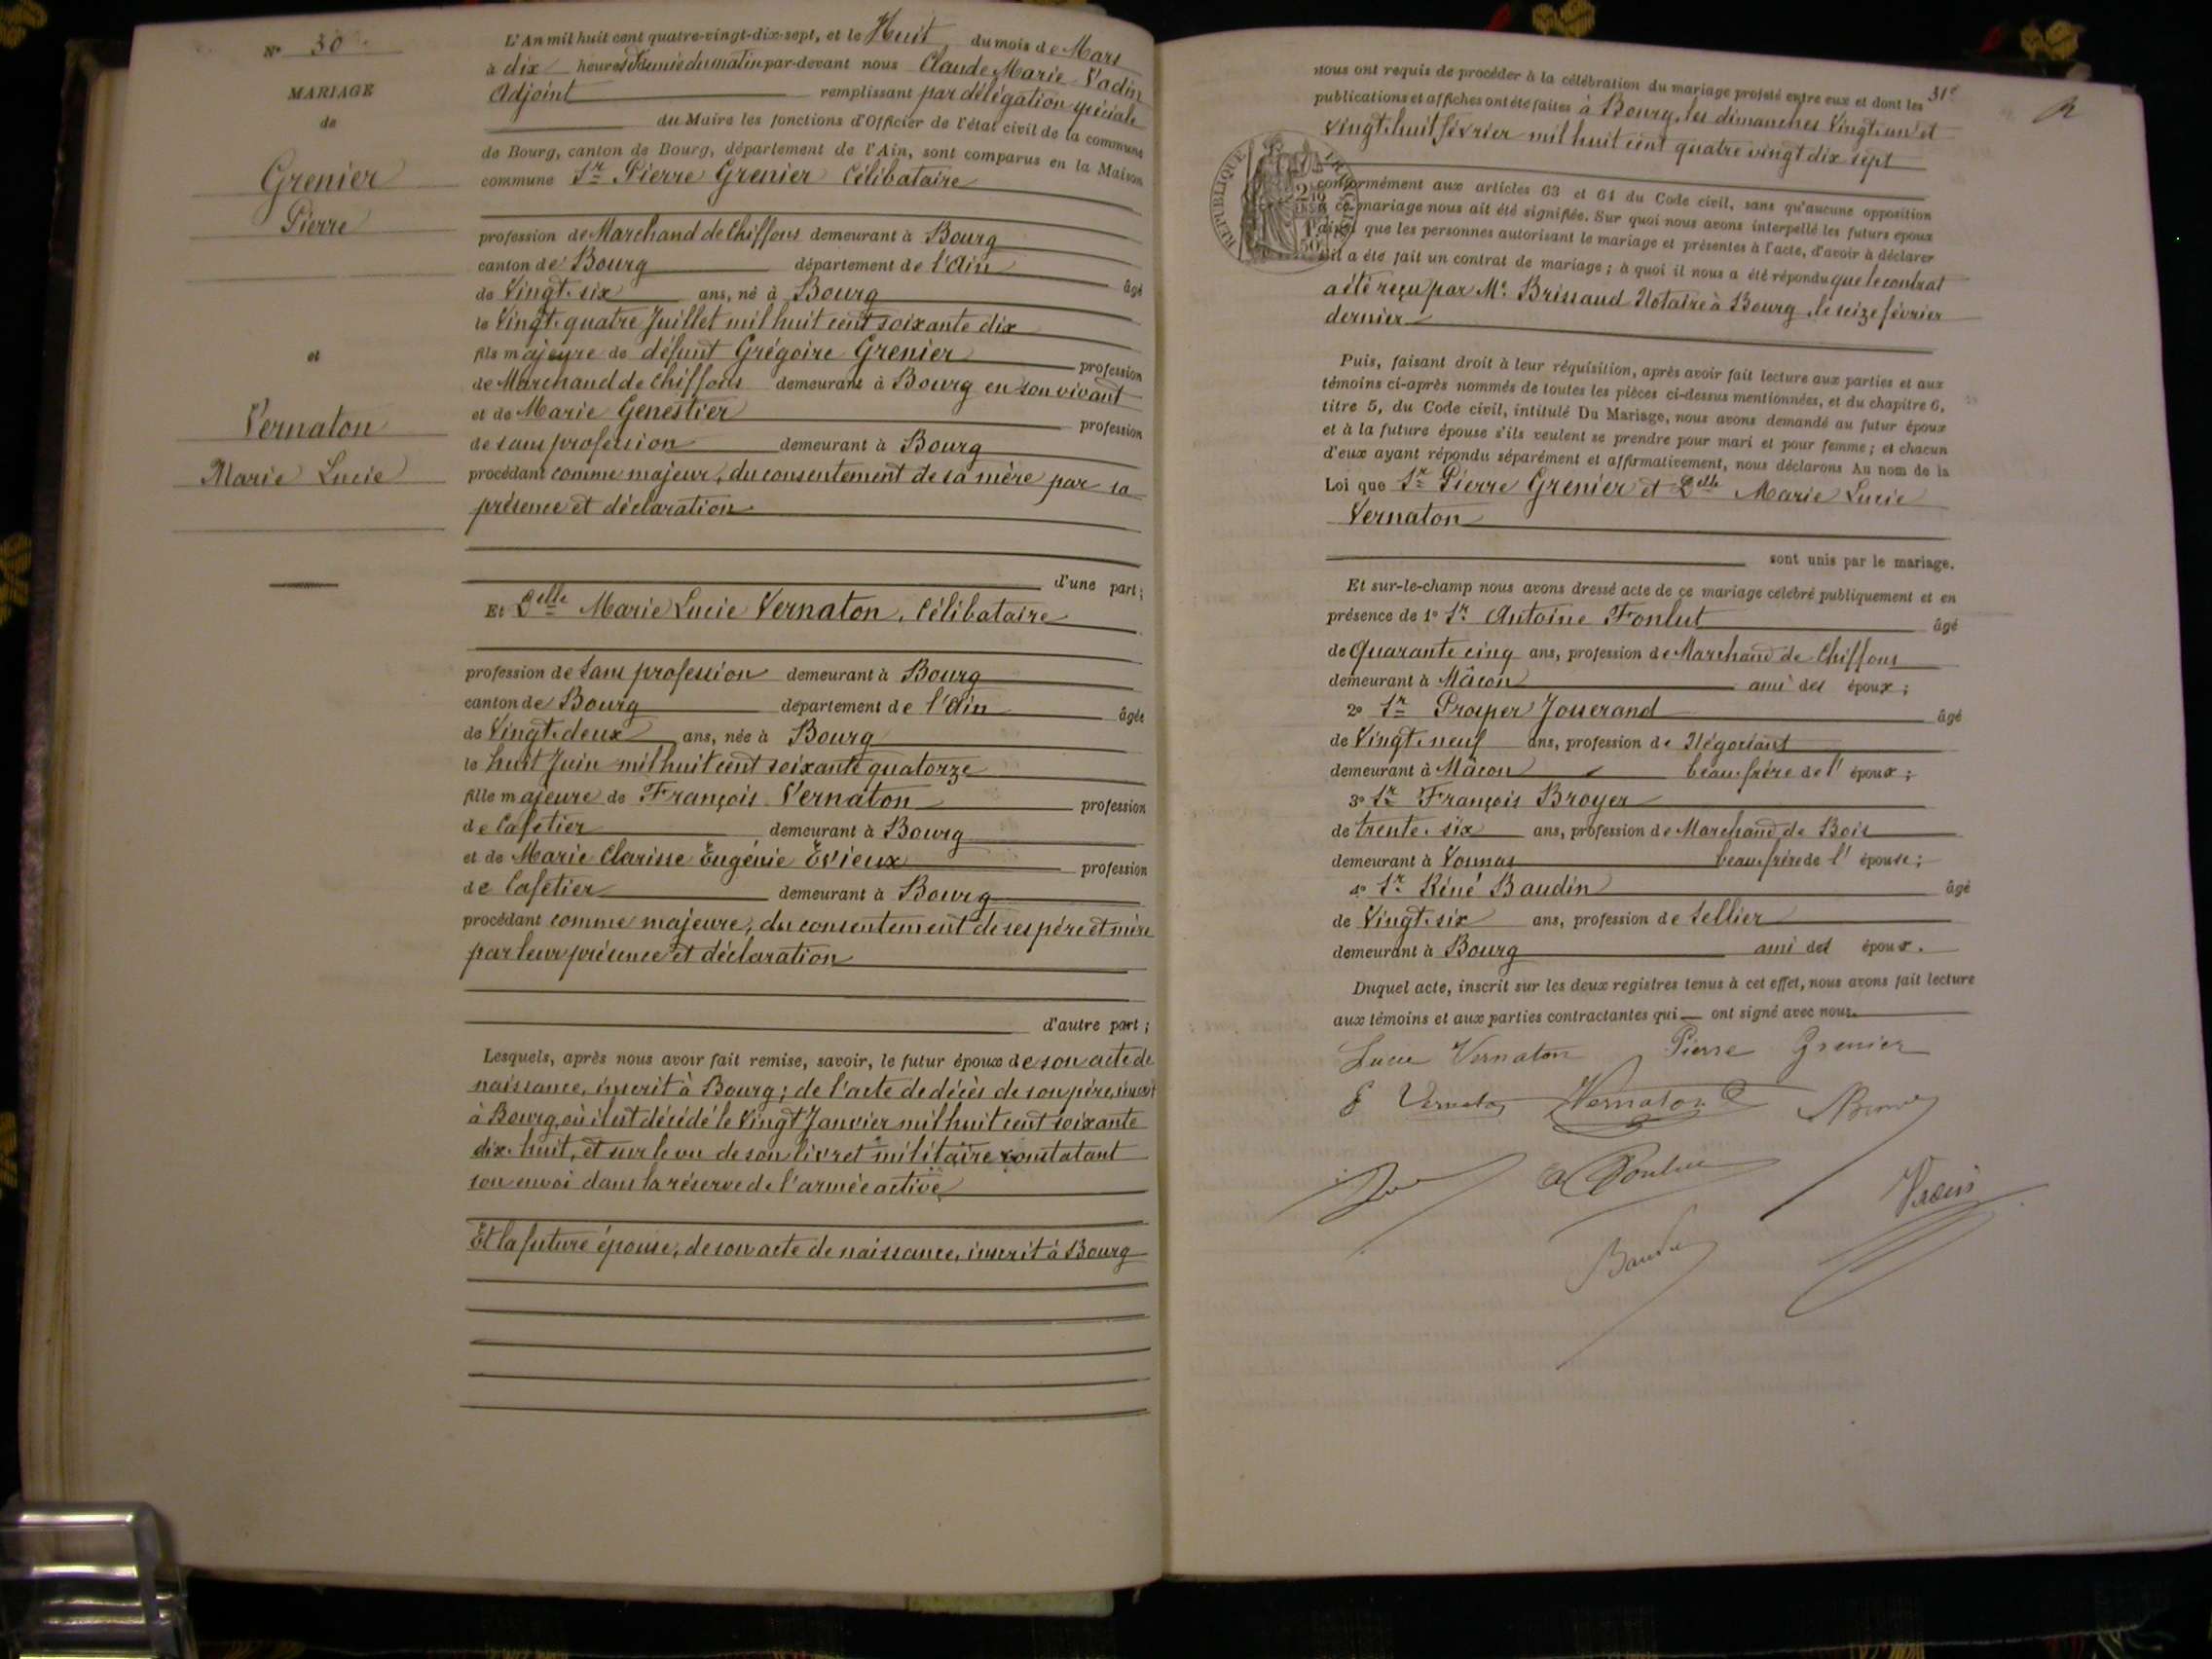 N° 30
MARIAGE
de
Grenier
Pierre
et
Vernaton
Marie Lucie
L'An mil huit cent quatre-vingt-dix-sept, et le Huit du mois de Mars
à dix heures & demie du matin par-devant nous Claude Marie Vadin
Adjoint remplissant par délégation spéciale
du Maire les fonctions d'Officier de l'état civil de la commune
de Bourg, canton de Bourg, département de l'Ain, sont comparus en la Maison
commune Sr Pierre Grenier Célibataire
profession de Marchand de Chiffons demeurant à Bourg
canton de Bourg département de l'Ain âgé
de Vingt-six ans, né à Bourg
le Vingt-quatre Juillet mil huit cent soixante dix
fils majeure de défunt Grégoire Grenier profession
de Marchand de Chiffons demeurant à Bourg en son vivant
et de Marie Genestier profession
de sans profession demeurant à Bourg
procédant comme majeur, du consentement de sa mère par sa
présence et déclaration
d'une part;
Et Delle Marie Lucie Vernaton, Célibataire
profession de Sans profession demeurant à Bourg
canton de Bourg département de l'Ain âgée
de Vingt-deux ans, née à Bourg
le huit Juin mil huit cent soixante quatorze
fille majeure de François Vernaton profession
de Cafetier demeurant à Bourg
et de Marie Clarisse Eugénie Evieux profession
de Cafetier demeurant à Bourg
procédant comme majeure, du consentement de ses père et mère
par leur présence et déclaration
d'autre part;
Lesquels, après nous avoir fait remise, savoir, le futur époux de son acte de
naissance, inscrit à Bourg; de l'acte de décès de son père, inscrit
à Bourg, où il est décédé le Vingt Janvier mil huit cent soixante
dix-huit, et sur le vu de son livret militaire constatant
son envoi dans la réserve de l'armée active
Et la future épouse, de son acte de naissance, inscrit à Bourg
31e
nous ont requis de procéder à la célébration du mariage projeté entre eux et dont les
publications et affiches ont été faites à Bourg, les dimanches Vingt-un et
Vingt-huit février mil huit cent quatre vingt dix sept
REPUBLIQUE FRANÇAISE
conformément aux articles 63 et 64 du Code civil, sans qu'aucune opposition
à ce mariage nous ait été signifiée. Sur quoi nous avons interpellé les futurs époux
ainsi que les personnes autorisant le mariage et présentes à l'acte, d'avoir à déclarer
s'il a été fait un contrat de mariage; à quoi il nous a été répondu que le contrat
a été reçu par Me Brissaud Notaire à Bourg, le seize février
dernier
Puis, faisant droit à leur réquisition, après avoir fait lecture aux parties et aux
témoins ci-après nommés de toutes les pièces ci-dessus mentionnées, et du chapitre 6,
titre 5, du Code civil, intitulé Du Mariage, nous avons demandé au futur époux
et à la future épouse s'ils veulent se prendre pour mari et pour femme; et chacun
d'eux ayant répondu séparément et affirmativement, nous déclarons Au nom de la
Loi que Sr Pierre Grenier et Delle Marie Lucie
Vernaton
sont unis par le mariage.
Et sur-le-champ nous avons dressé acte de ce mariage célébré publiquement et en
présence de 1° Sr Antoine Fonlut âgé
de Quarante cinq ans, profession de Marchand de Chiffons
demeurant à Mâcon ami des époux;
2° Sr Prosper Josserand âgé
de Vingt-neuf ans, profession de Négociant
demeurant à Mâcon beau-frère de l'époux;
3° Sr François Broyer
de trente-six ans, profession de Marchand de Bois
demeurant à Vonnas beau-frère de l'épouse;
4° Sr Réné Baudin âgé
de Vingt-six ans, profession de Sellier
demeurant à Bourg ami des époux.
Duquel acte, inscrit sur les deux registres tenus à cet effet, nous avons fait lecture
aux témoins et aux parties contractantes qui ont signé avec nous.
Lucie Vernaton Pierre Grenier
E Vernaton Vernaton
Baudin Vadin